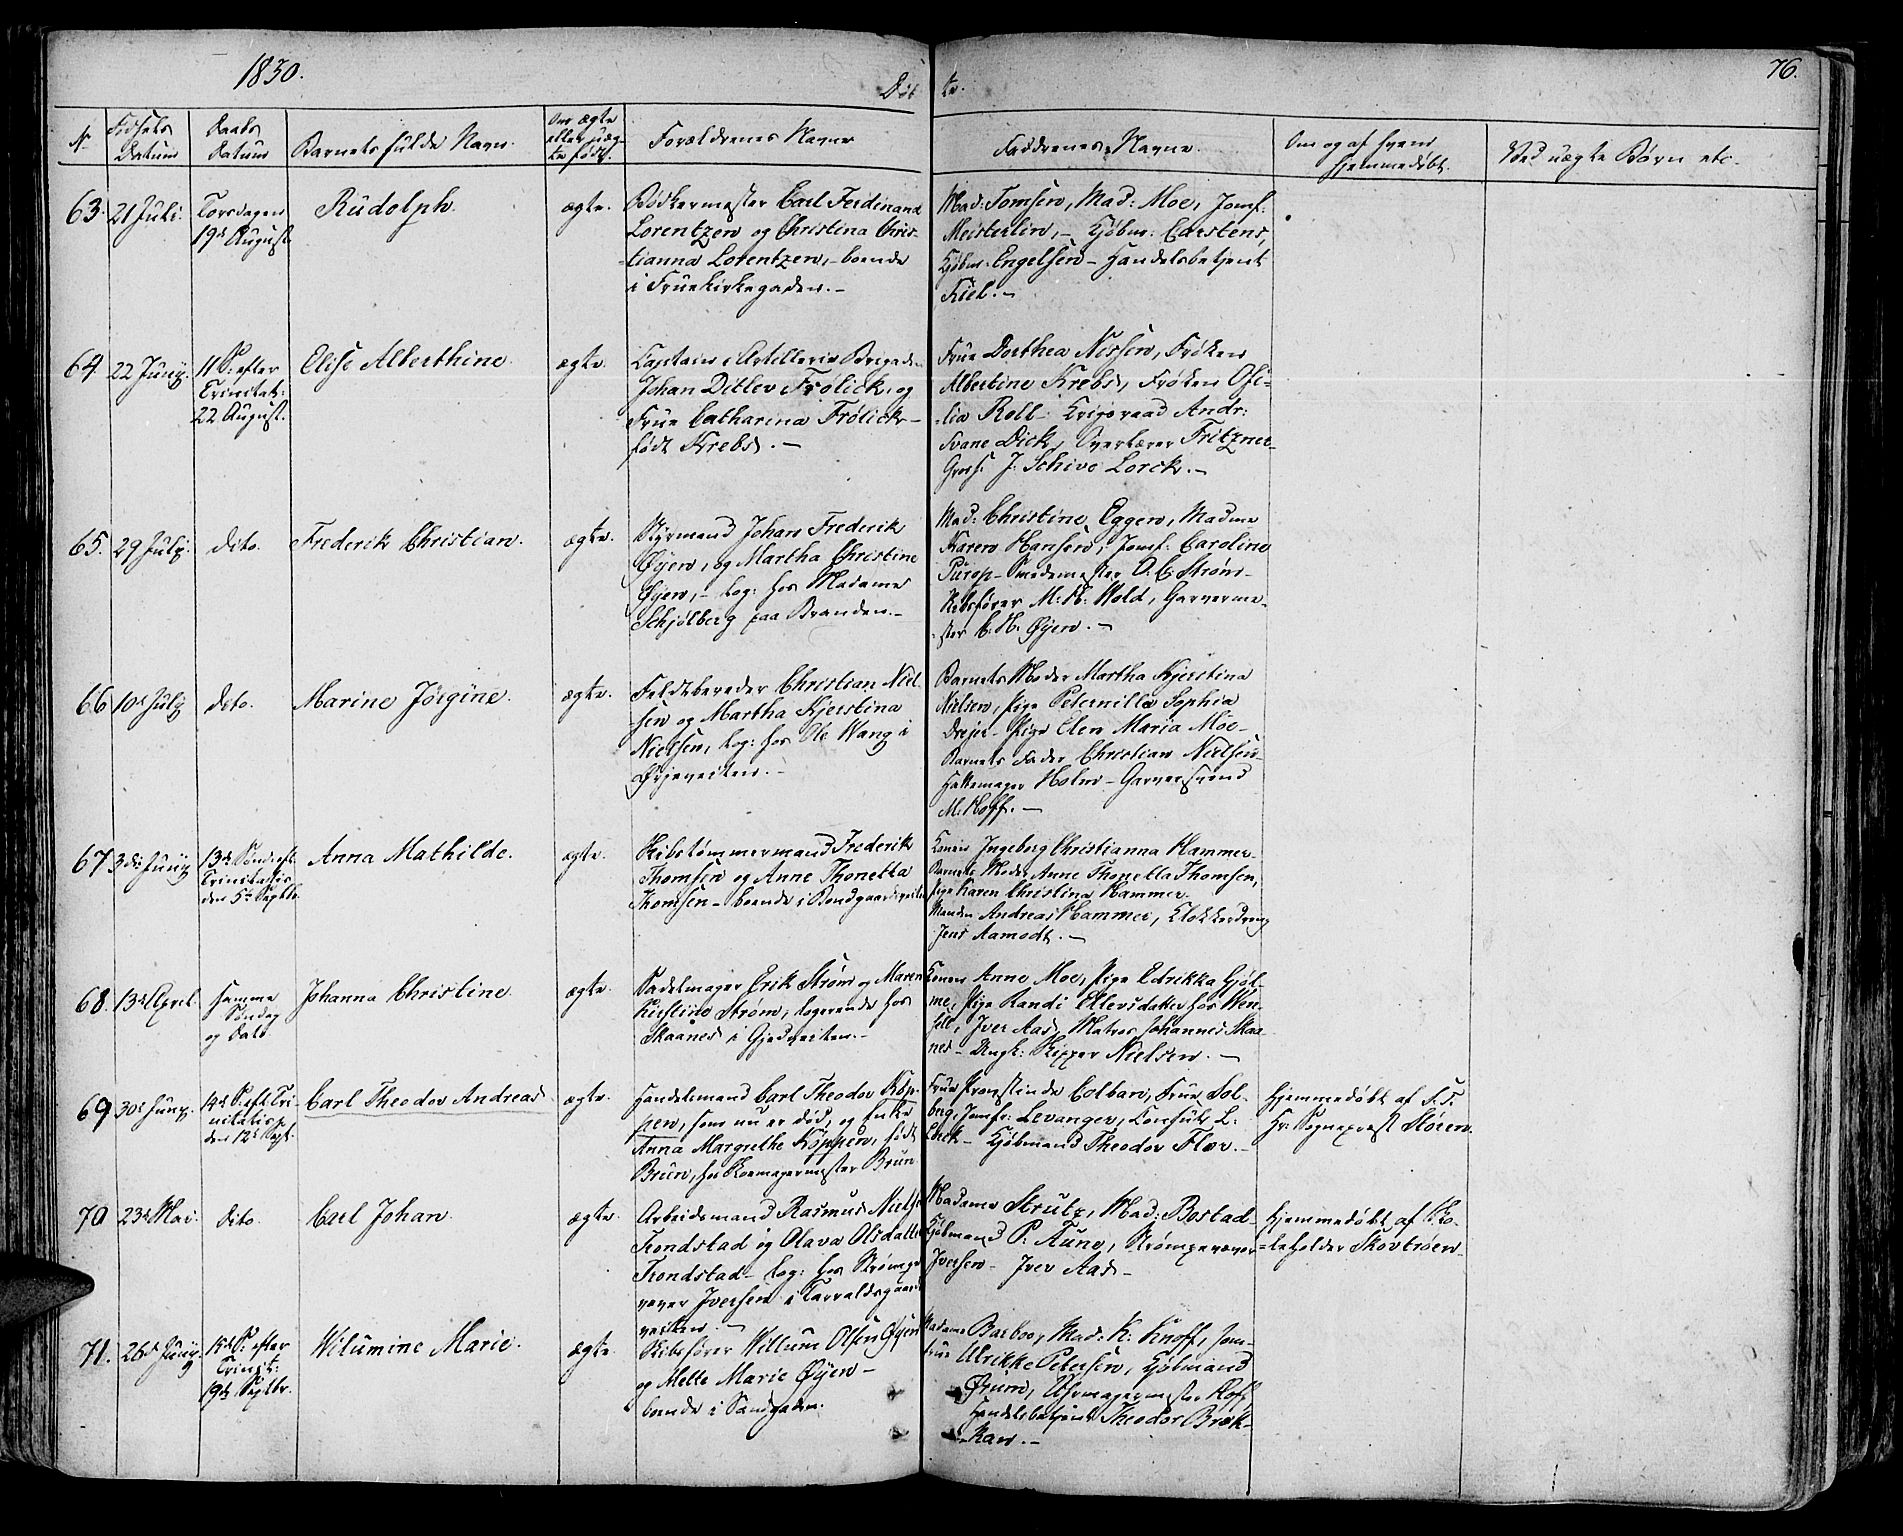 1830.
Døb-
te.
76.
No
Fødsels Datum
Daabs Datum
Barnets fulde Navn.
Om ægte eller uæg-te født.
Forældrenes Navne
Faddrenes Navne.
Om og af hvem hjemmedøbt.
Ved uægte Børn etc.
63. 21 Juli. Torsdagen 19de August. Rudolph. ægte.
Bødkermester Carl Ferdinand
Lorentzen og Christina Chris-
tianna Lorentzen, - boende
i Fruekirkegaden. -
Mad: Tomsen, Mad: Moe, Jomf:
Meisterlin, - Kjøbm: Carstens,
Kjøbm: Engelsen - Handelsbetjent
Kiel. -
64. 22 Juny. 11 S: efter Trinitat: 22 August. Elise Alberthine. ægte.
Captain i Artillerie Brigaden
Johan Ditlev Frolick, og
Frue Catharina Frølick -
født Krebs. -
Frue Dorthea Nissen, Frøken
Albertine Krebs, Frøken Ofe-
lia Roll - Krigsraad Andr:
Svane Dick, Overlærer Fritzner
Gross: J. Schive Lorck. -
65. 29 July. dito. Frederik Christian. ægte.
Styrmand Johan Frederik
Øyen, og Martha Christine
Øyen, - log: hos Madame
Schjølberg paa Branden. -
Mad: Christine Eggen, Madme
Karen Hansen, Jomf: Caroline
Purop - Smedemester O. C. Strøm -
Skibsfører M: K: Wold, Garverme-
ster C. H. Øyen. -
66 10de July dito. Marine Jørgine. ægte.
Feldtbereder Christian Niel-
sen og Martha Kjerstina
Nielsen, log: hos Ole Wang i
Ørjeveiten. -
Barnets Moder Martha Kjerstina
Nielsen, Pige Peternilla Sophia
Drejer - Pige Elen Maria Moe -
Barnets Fader Christian Nielsen -
Hattemager Holm - Garversvend
M: Hoff. -
67 3de Juny 13de Søndag eft. Trinitatis den 5te Septbr. Anna Mathilde. ægte.
Skibstømmermand Frederik
Thomsen og Anne Thonetta
Thomsen - boende i Bondgaardsveiten
Konen Ingeborg Christianna Hammer -
Barnets Moder Anne Thonetta Thomsen,
Pige Karen Christina Hammer.
Manden Andreas Hammer, Klokkerdreng
Jens Aamodt. -
68. 13de April. samme Søndag og Dato. Johanna Christine. ægte.
Sadelmager Erik Strøm og Maren
Kirstine Strøm, logerende hos
Skaanes i Gjedveiten. -
Konen Anne Moe, Pige Edrikka Gjøl-
me, Pige Randi Ellersdatter hos Wen-
sell, Iver Aas, Matros Johannes Skaa-
nes - Ungk: Kipper Nielsen. -
69 30te Juny. 14de S: eft. Tri-nitatis, den 12te Sept. Carl Theodor Andreas ægte.
Handelsmand Carl Theodor Köp-
pen, som nu er død, og Enke
Anna Margrethe Köppen, født
Brun, hos Kornmagermester Brun
Frue Provstinde Colban, Frue Sol-
berg, Jomfr: Levanger, Consul L.
Lorck - Kjøbmand Theodor Floer. -
Hjemmedøbt af S. T.
Hr: Sognepræst Støren.
70 23de Mai. dito. Carl Johan. ægte.
Arbeidsmand Rasmus Nielsen
Trondstad og Olava Olsdatter
Trondstad - log: hos Strømpe
væver Iversen i Taraldsgaards
veiten. -
Madame Strutz, Mad: Bostad -
Kjøbmand P: Aune, Strømpevæver
Iversen - Iver Aas -
Hjemmedøbt af Sko-
leholder Skovtrøen -
71. 26de Juny. 15de S: efter Trinit: 19de Septbr. Wilumine Marie. ægte.
Skibsfører Willum Olsen Øyen
og Mette Marie Øyen -
boende i Sandgaden.
Madame Barboe, Mad: K: Knoff, Jom-
frue Ulrikke Petersen, Kjøbmand
Ørum, Uhrmagermester Hoff,
Handelsbetjent Theodor Bræk-
kan. -